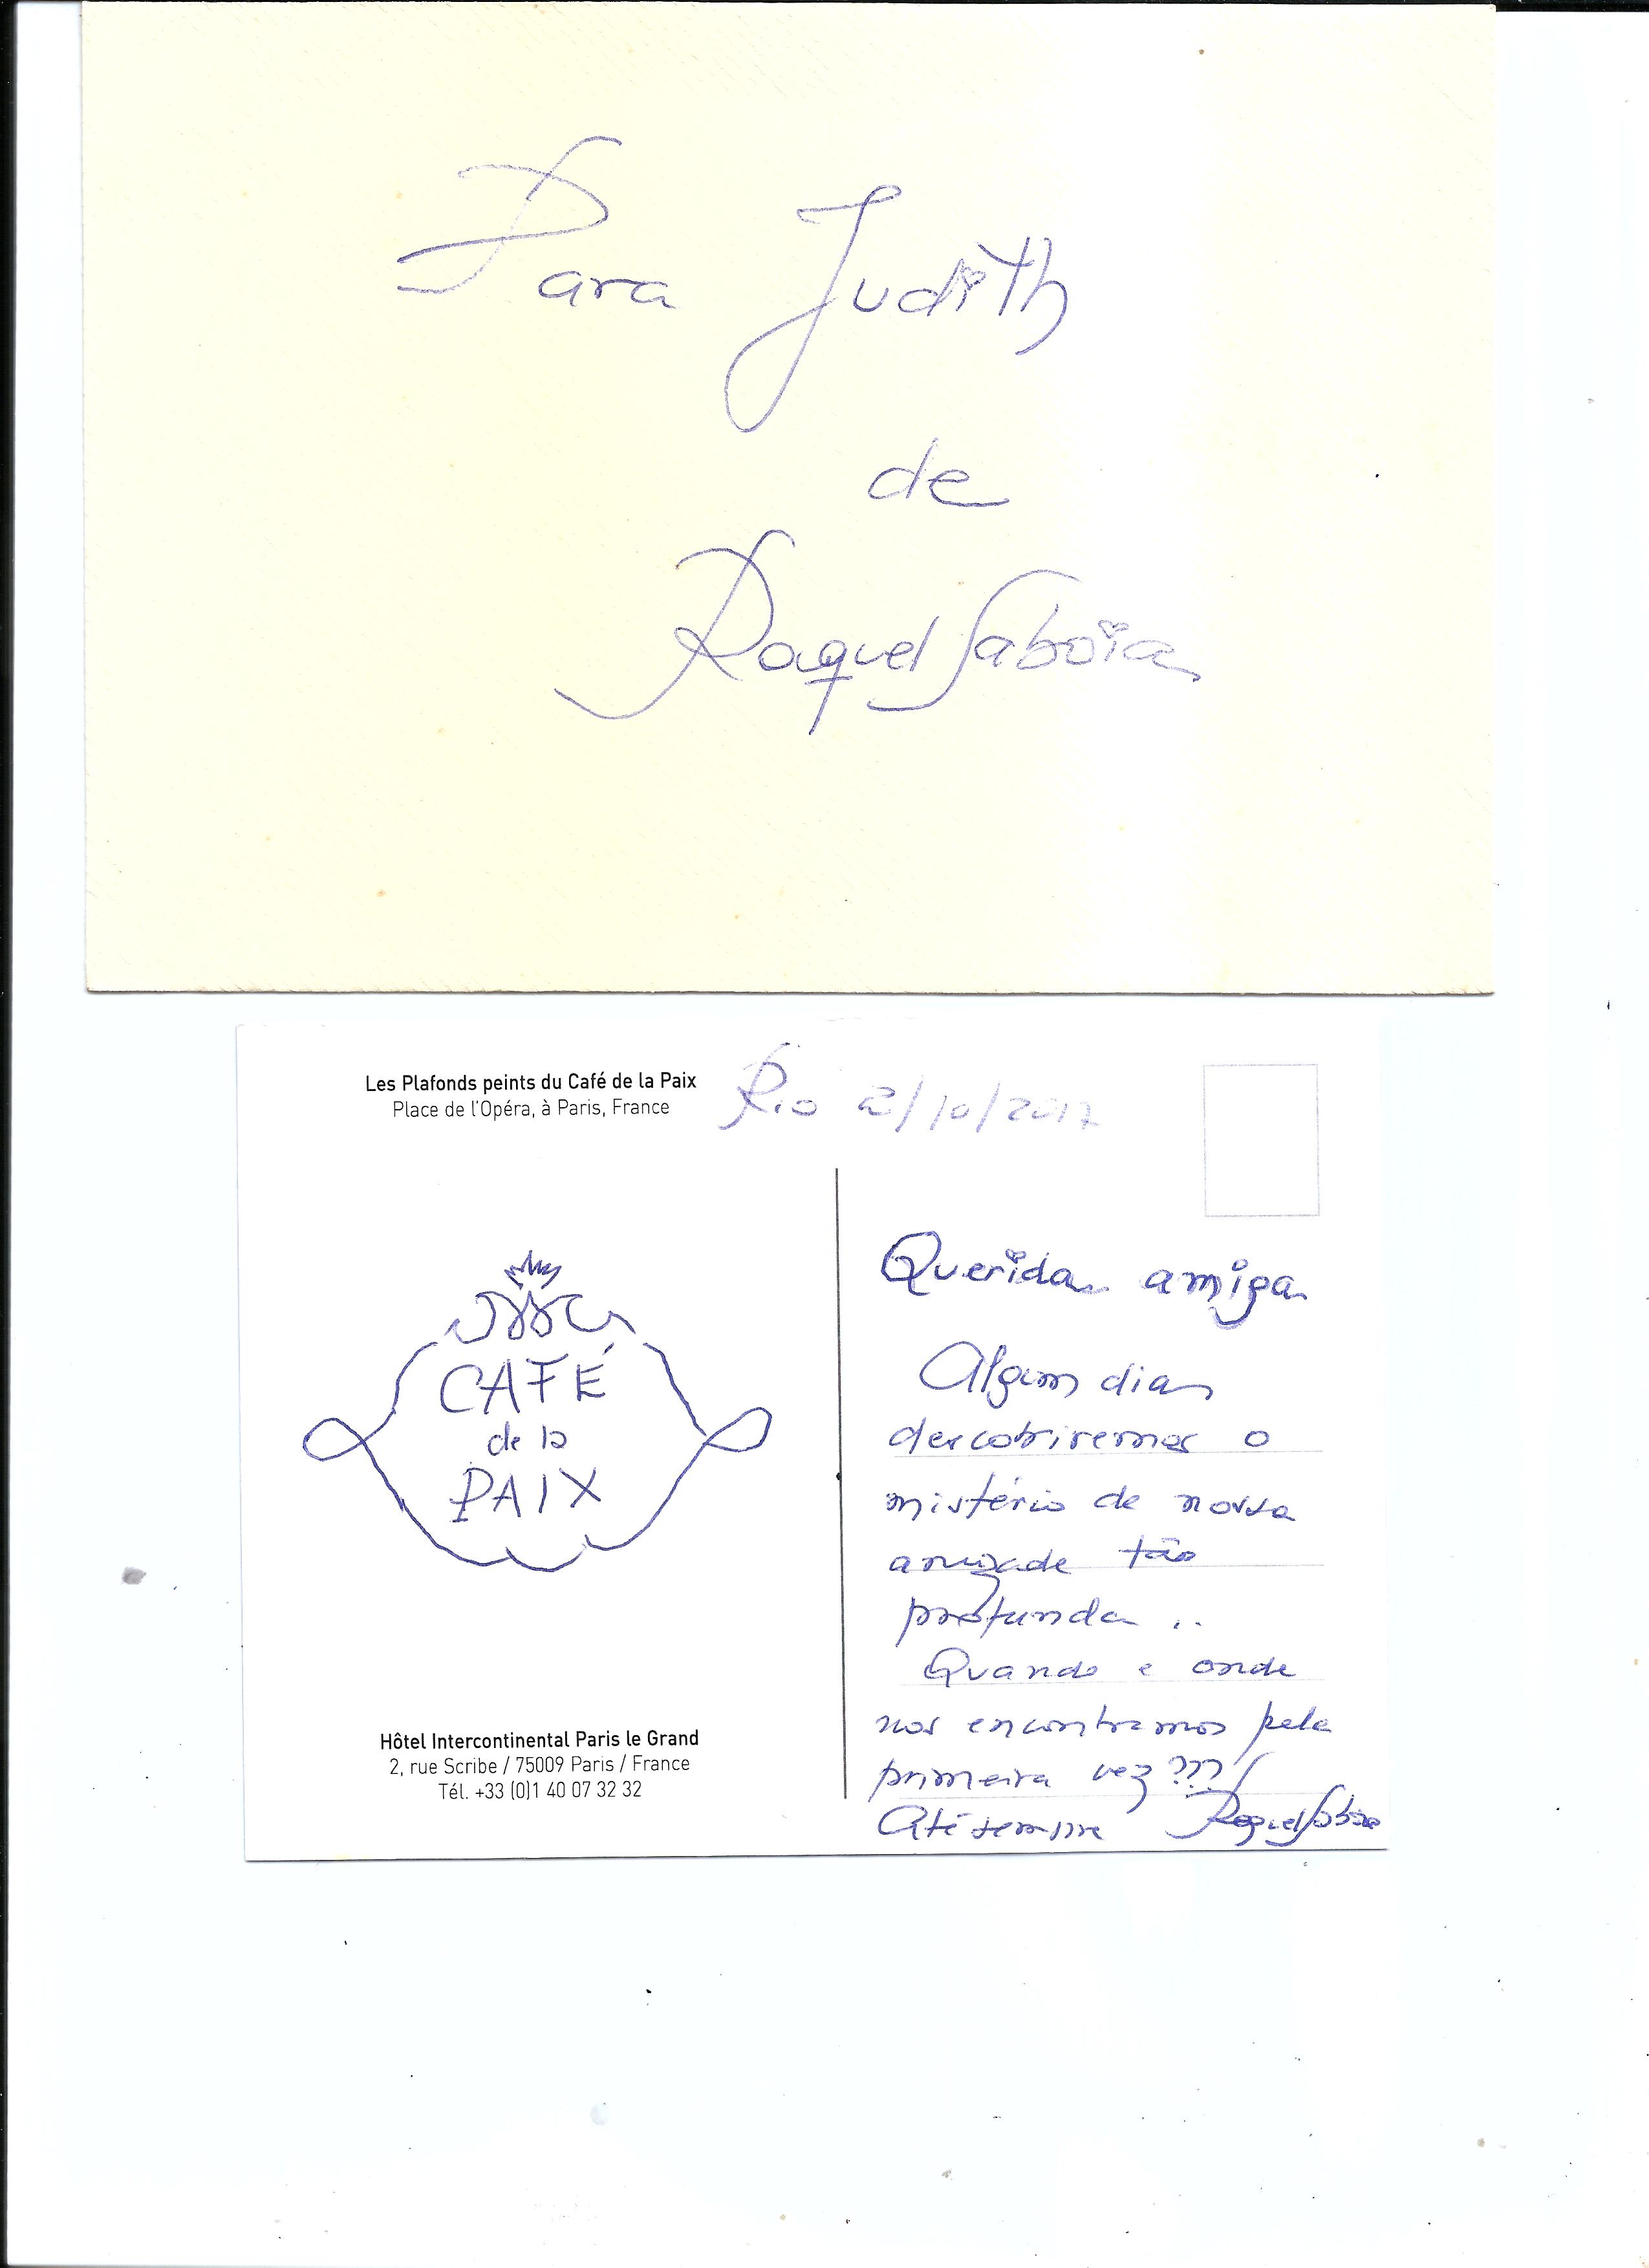 Para Judith
de
Raquel Saboia
Les Plafonds peints du Café de la Paix
Place de l'Opéra, à Paris, France
Rio 2/10/2017
CAFÉ
de la
PAIX
Hôtel Intercontinental Paris le Grand
2, rue Scribe / 75009 Paris / France
Tél. +33 (0)1 40 07 32 32
Querida amiga
Algum dia
descobriremos o
mistério de nossa
amizade tão
profunda ..
Quando e onde
nos encontramos pela
primeira vez ???
Até sempre Raquel Saboia